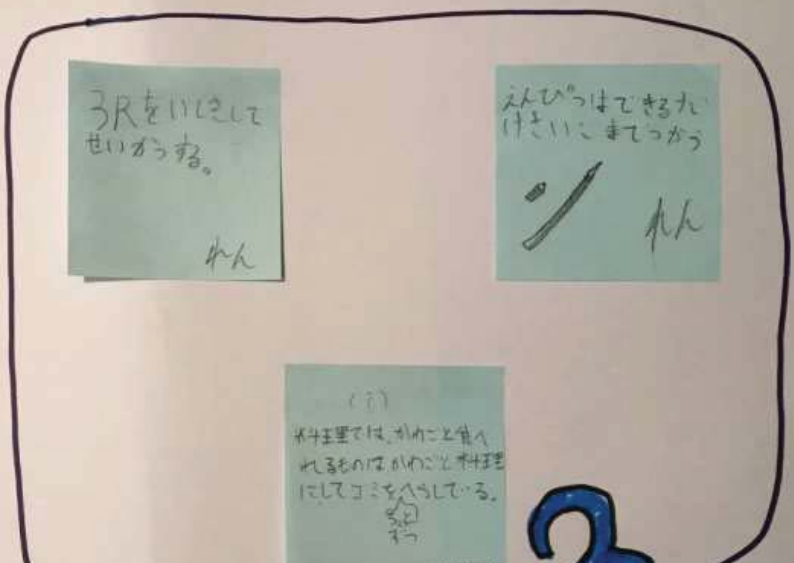 3Rをいしきして
せいかつする。
れん
えんぴつはできるだ
けさいごまでつかう
れん
料理では、かわごと食べ
れるものはかわごと料理
にしてゴミをへらしている。
ずつ